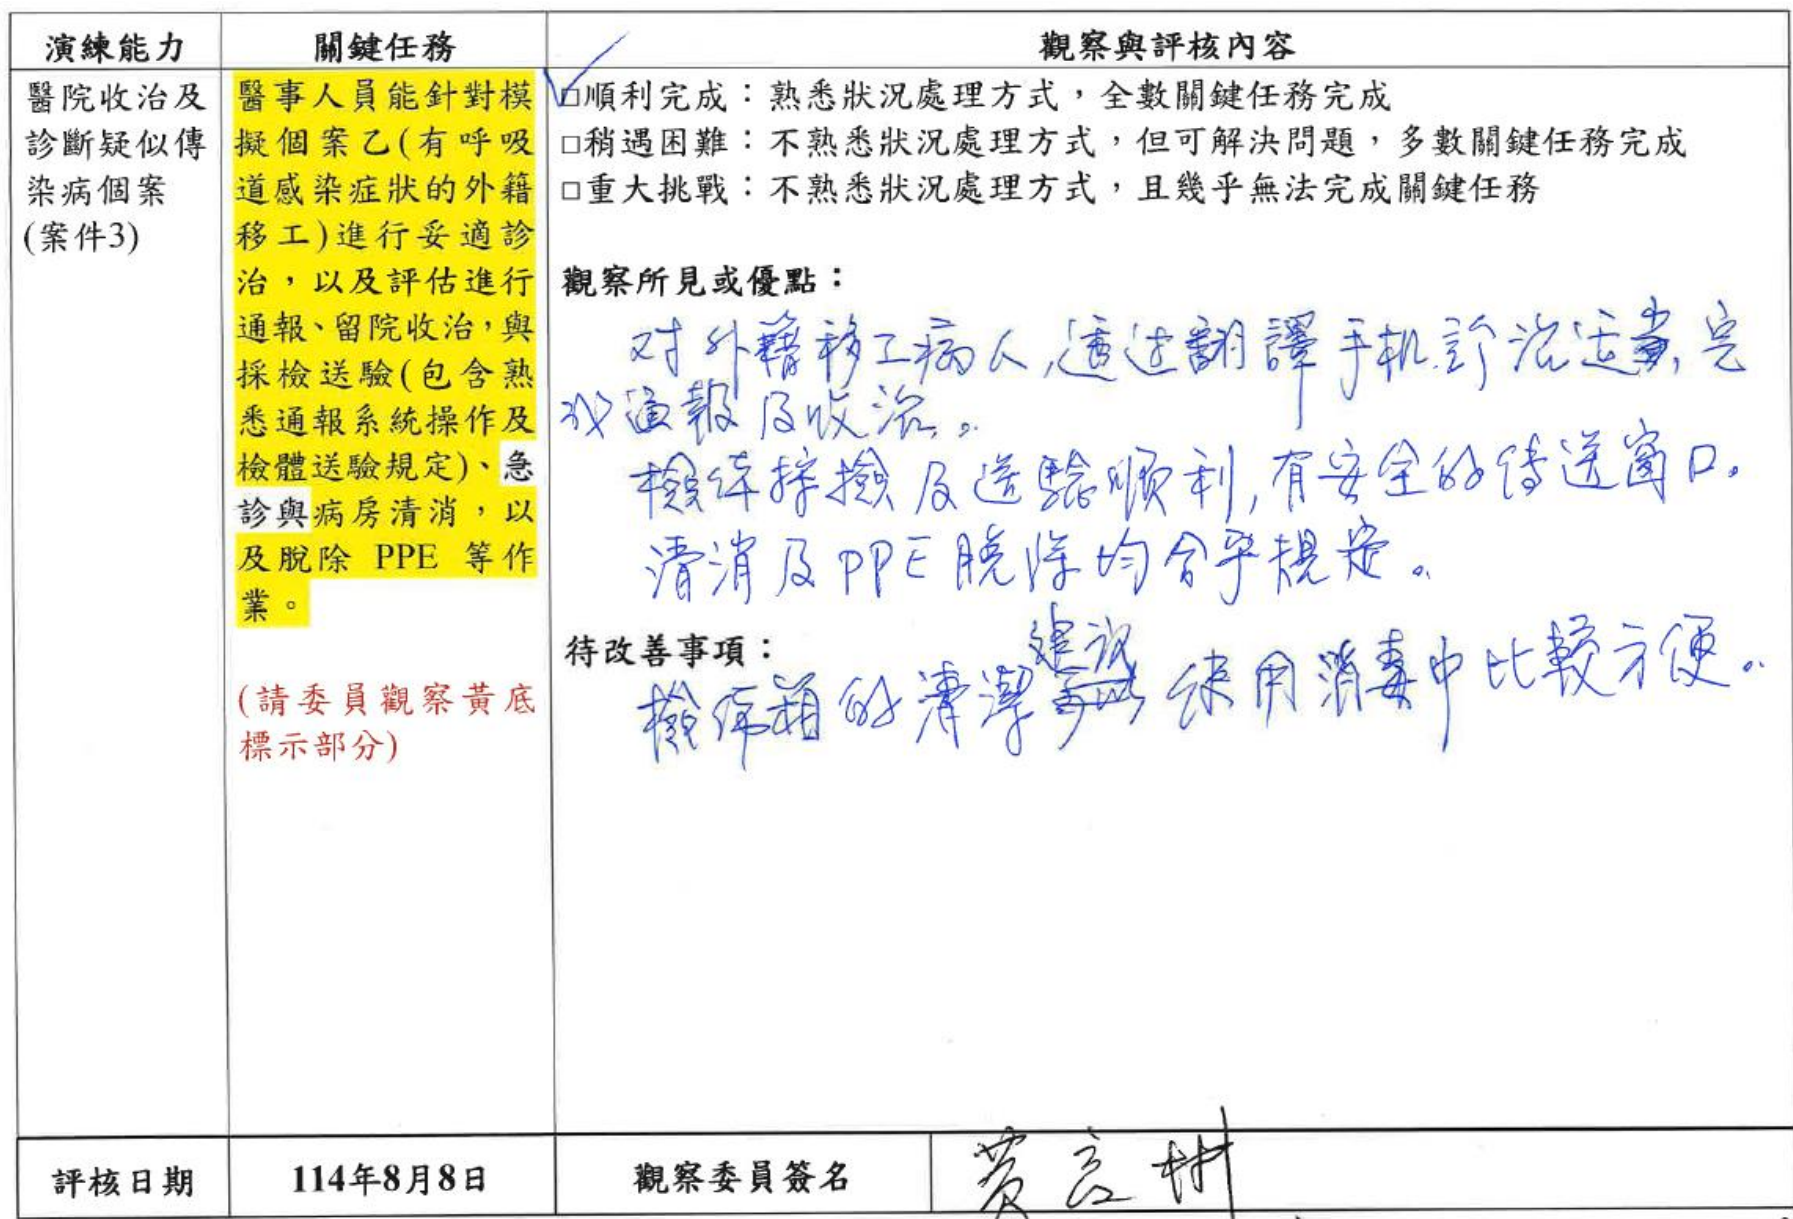 演練能力
關鍵任務
觀察與評核內容
醫院收治及
診斷疑似傳
染病個案
(案件3)
醫事人員能針對模
擬個案乙(有呼吸
道感染症狀的外籍
移工)進行妥適診
治，以及評估進行
通報、留院收治，與
採檢送驗(包含熟
悉通報系統操作及
檢體送驗規定)、急
診與病房清消，以
及脫除 PPE 等作
業。
(請委員觀察黃底
標示部分)
□順利完成：熟悉狀況處理方式，全數關鍵任務完成
□稍遇困難：不熟悉狀況處理方式，但可解決問題，多數關鍵任務完成
□重大挑戰：不熟悉狀況處理方式，且幾乎無法完成關鍵任務
觀察所見或優點：
对外籍移工病人，透过翻譯手机診治适當，完
成通報及收治。
檢体採撿及送驗順利，有安全的傳送窗口。
清消及PPE脫除均合乎規定。
待改善事項：
建議
檢体箱的清潔 使用消毒巾比較方便。
評核日期
114年8月8日
觀察委員簽名